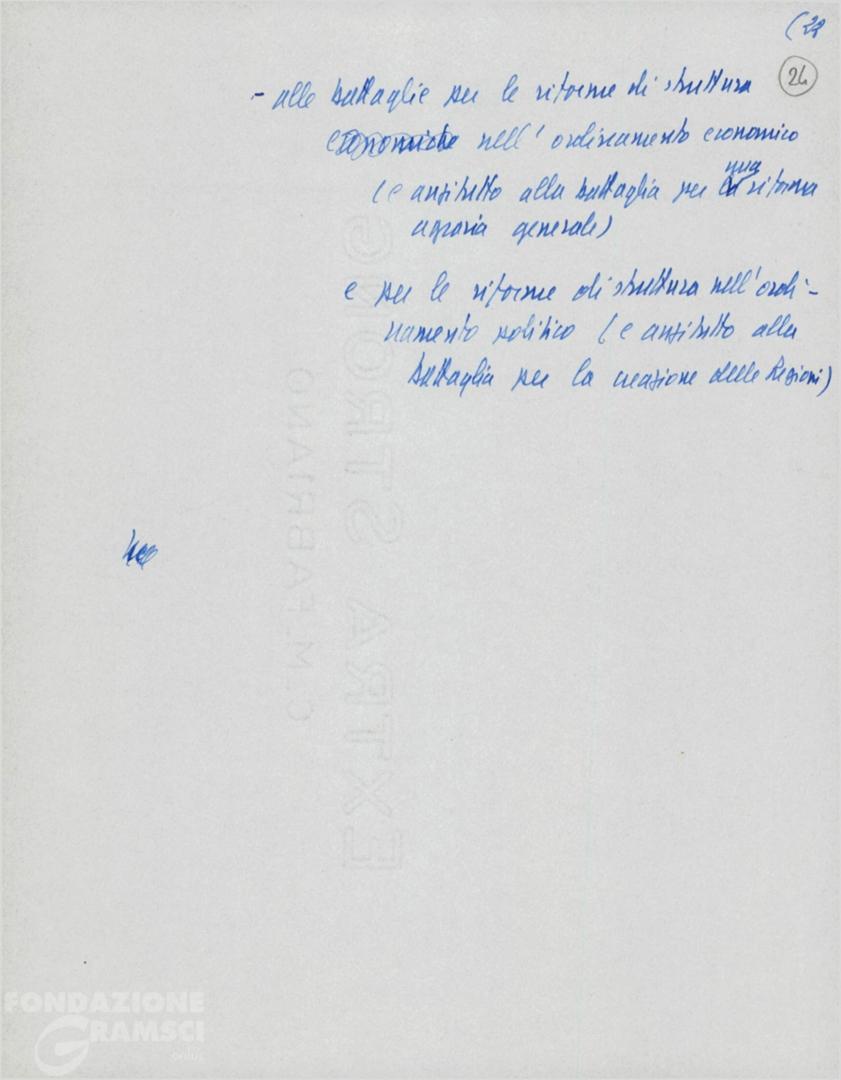 (22
24
- alle battaglie per le riforme di struttura
economiche nell'ordinamento economico
(e anzitutto alla battaglia per la una riforma
agraria generale)
e per le riforme di struttura nell'ordi-
namento politico (e anzitutto alla
battaglia per la creazione delle Regioni)
EXTRA STRONG
C.M. FABRIANO
FONDAZIONE
GRAMSCI
onlus